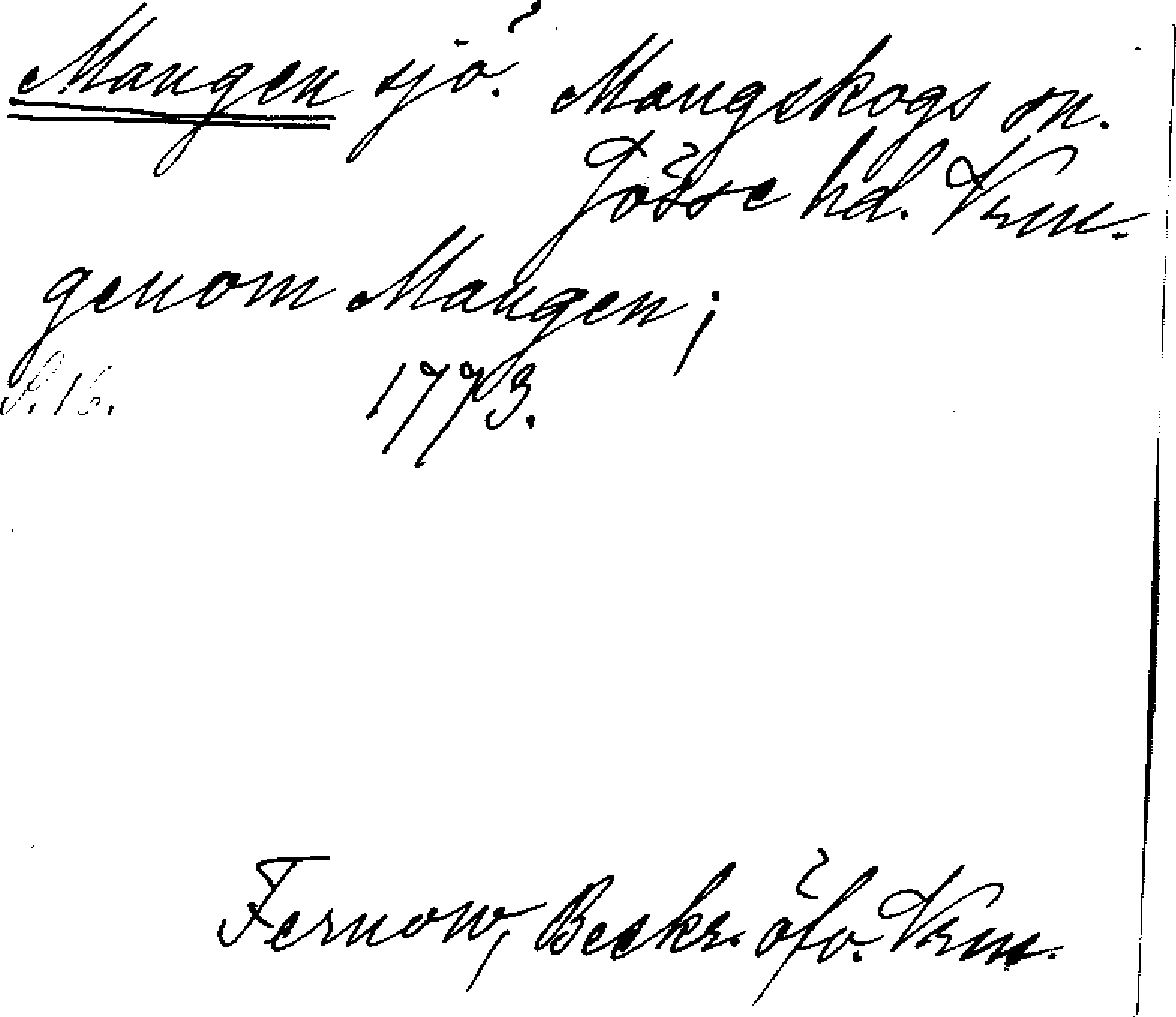 Mangen sjö. Mangskogs sn.
Jösse hd. Vrm.
genom Mangen;
S. 16. 1773.
Fernow, Beskr. öfv. Vrm.